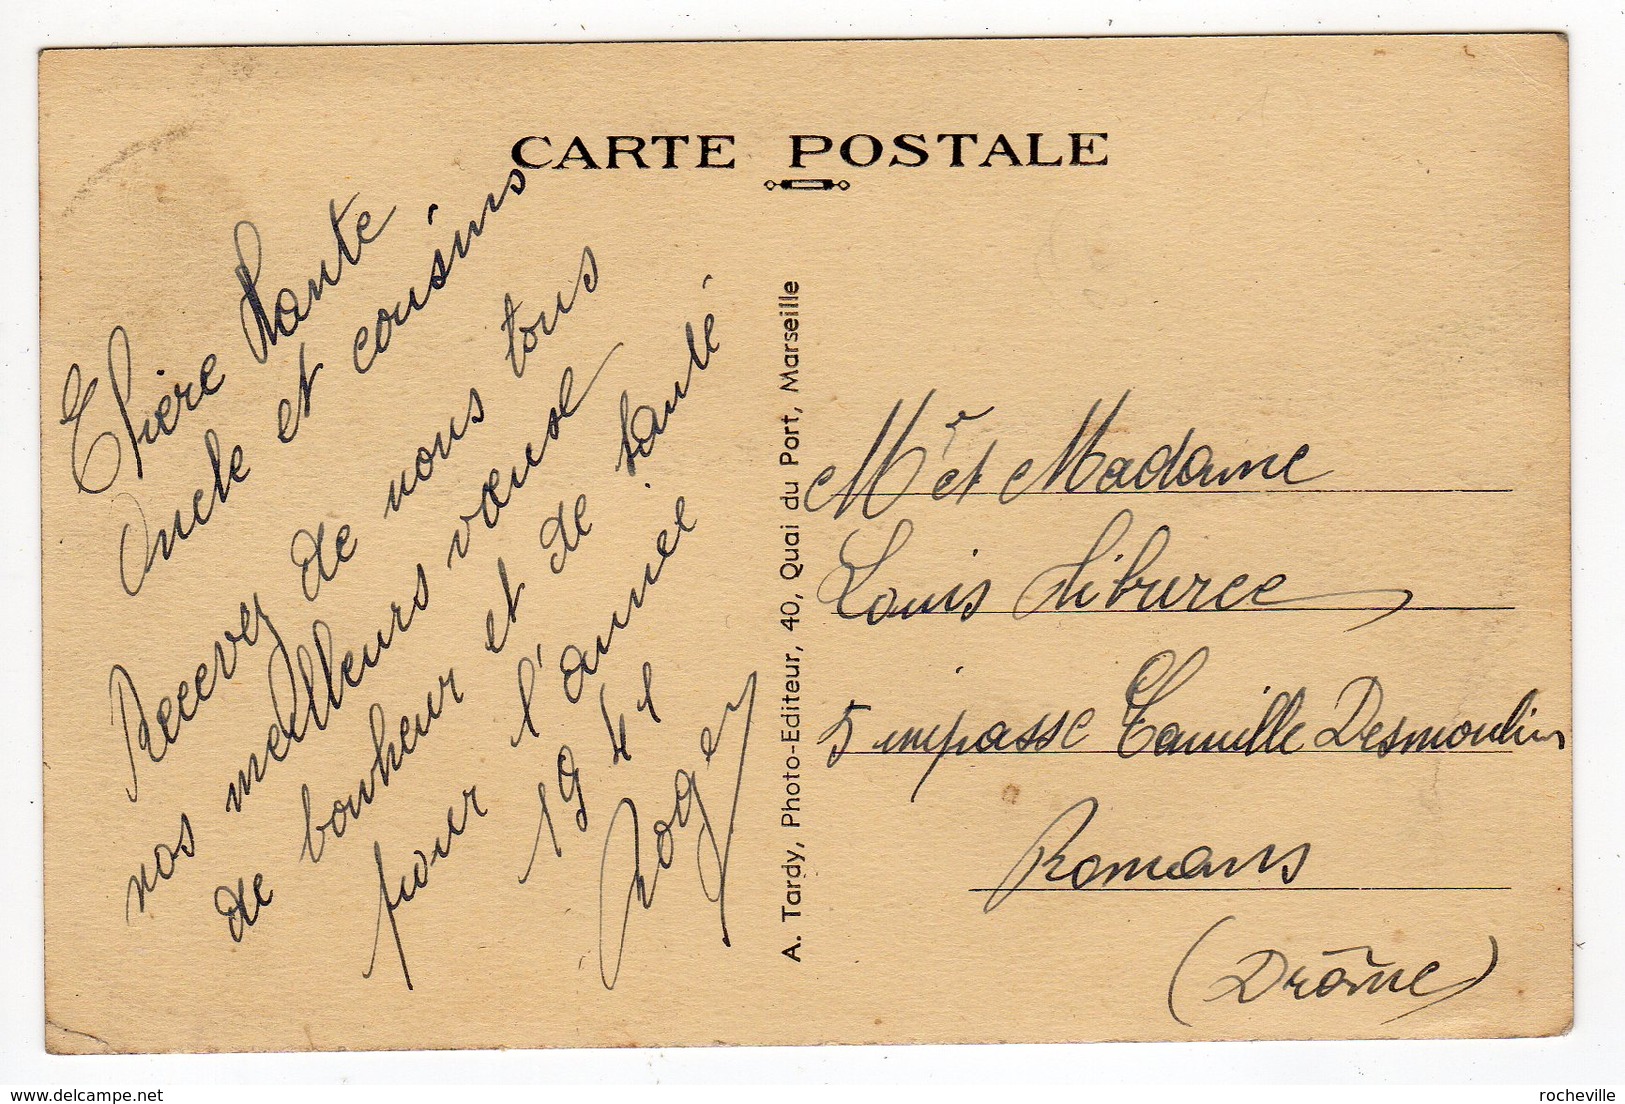 CARTE POSTALE
Chère Tante
Oncle et cousins
Recevez de nous tous
nos meilleurs vœux
de bonheur et de santé
pour l'année
1941
Roger
A. Tardy, Photo-Editeur, 40, Quai du Port, Marseille
Mr et Madame
Louis Tiburce
5 impasse Camille Desmoulins
Romans
(Drôme)
delcampe.net
rocheville